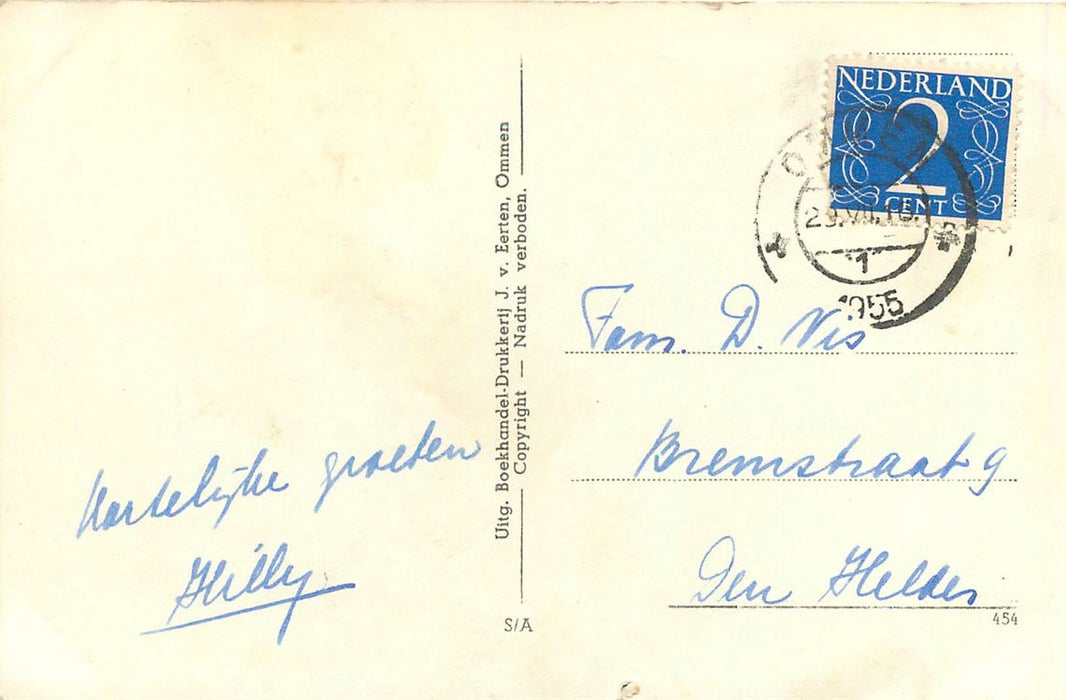 Hartelijke groeten
Hilly
Uitg. Boekhandel-Drukkerij J. v. Eerten, Ommen
Copyright — Nadruk verboden.
S/A
NEDERLAND
2
CENT
29.VII.
1
1955
Fam. D. Vis
Bremstraat 9
Den Helder
454